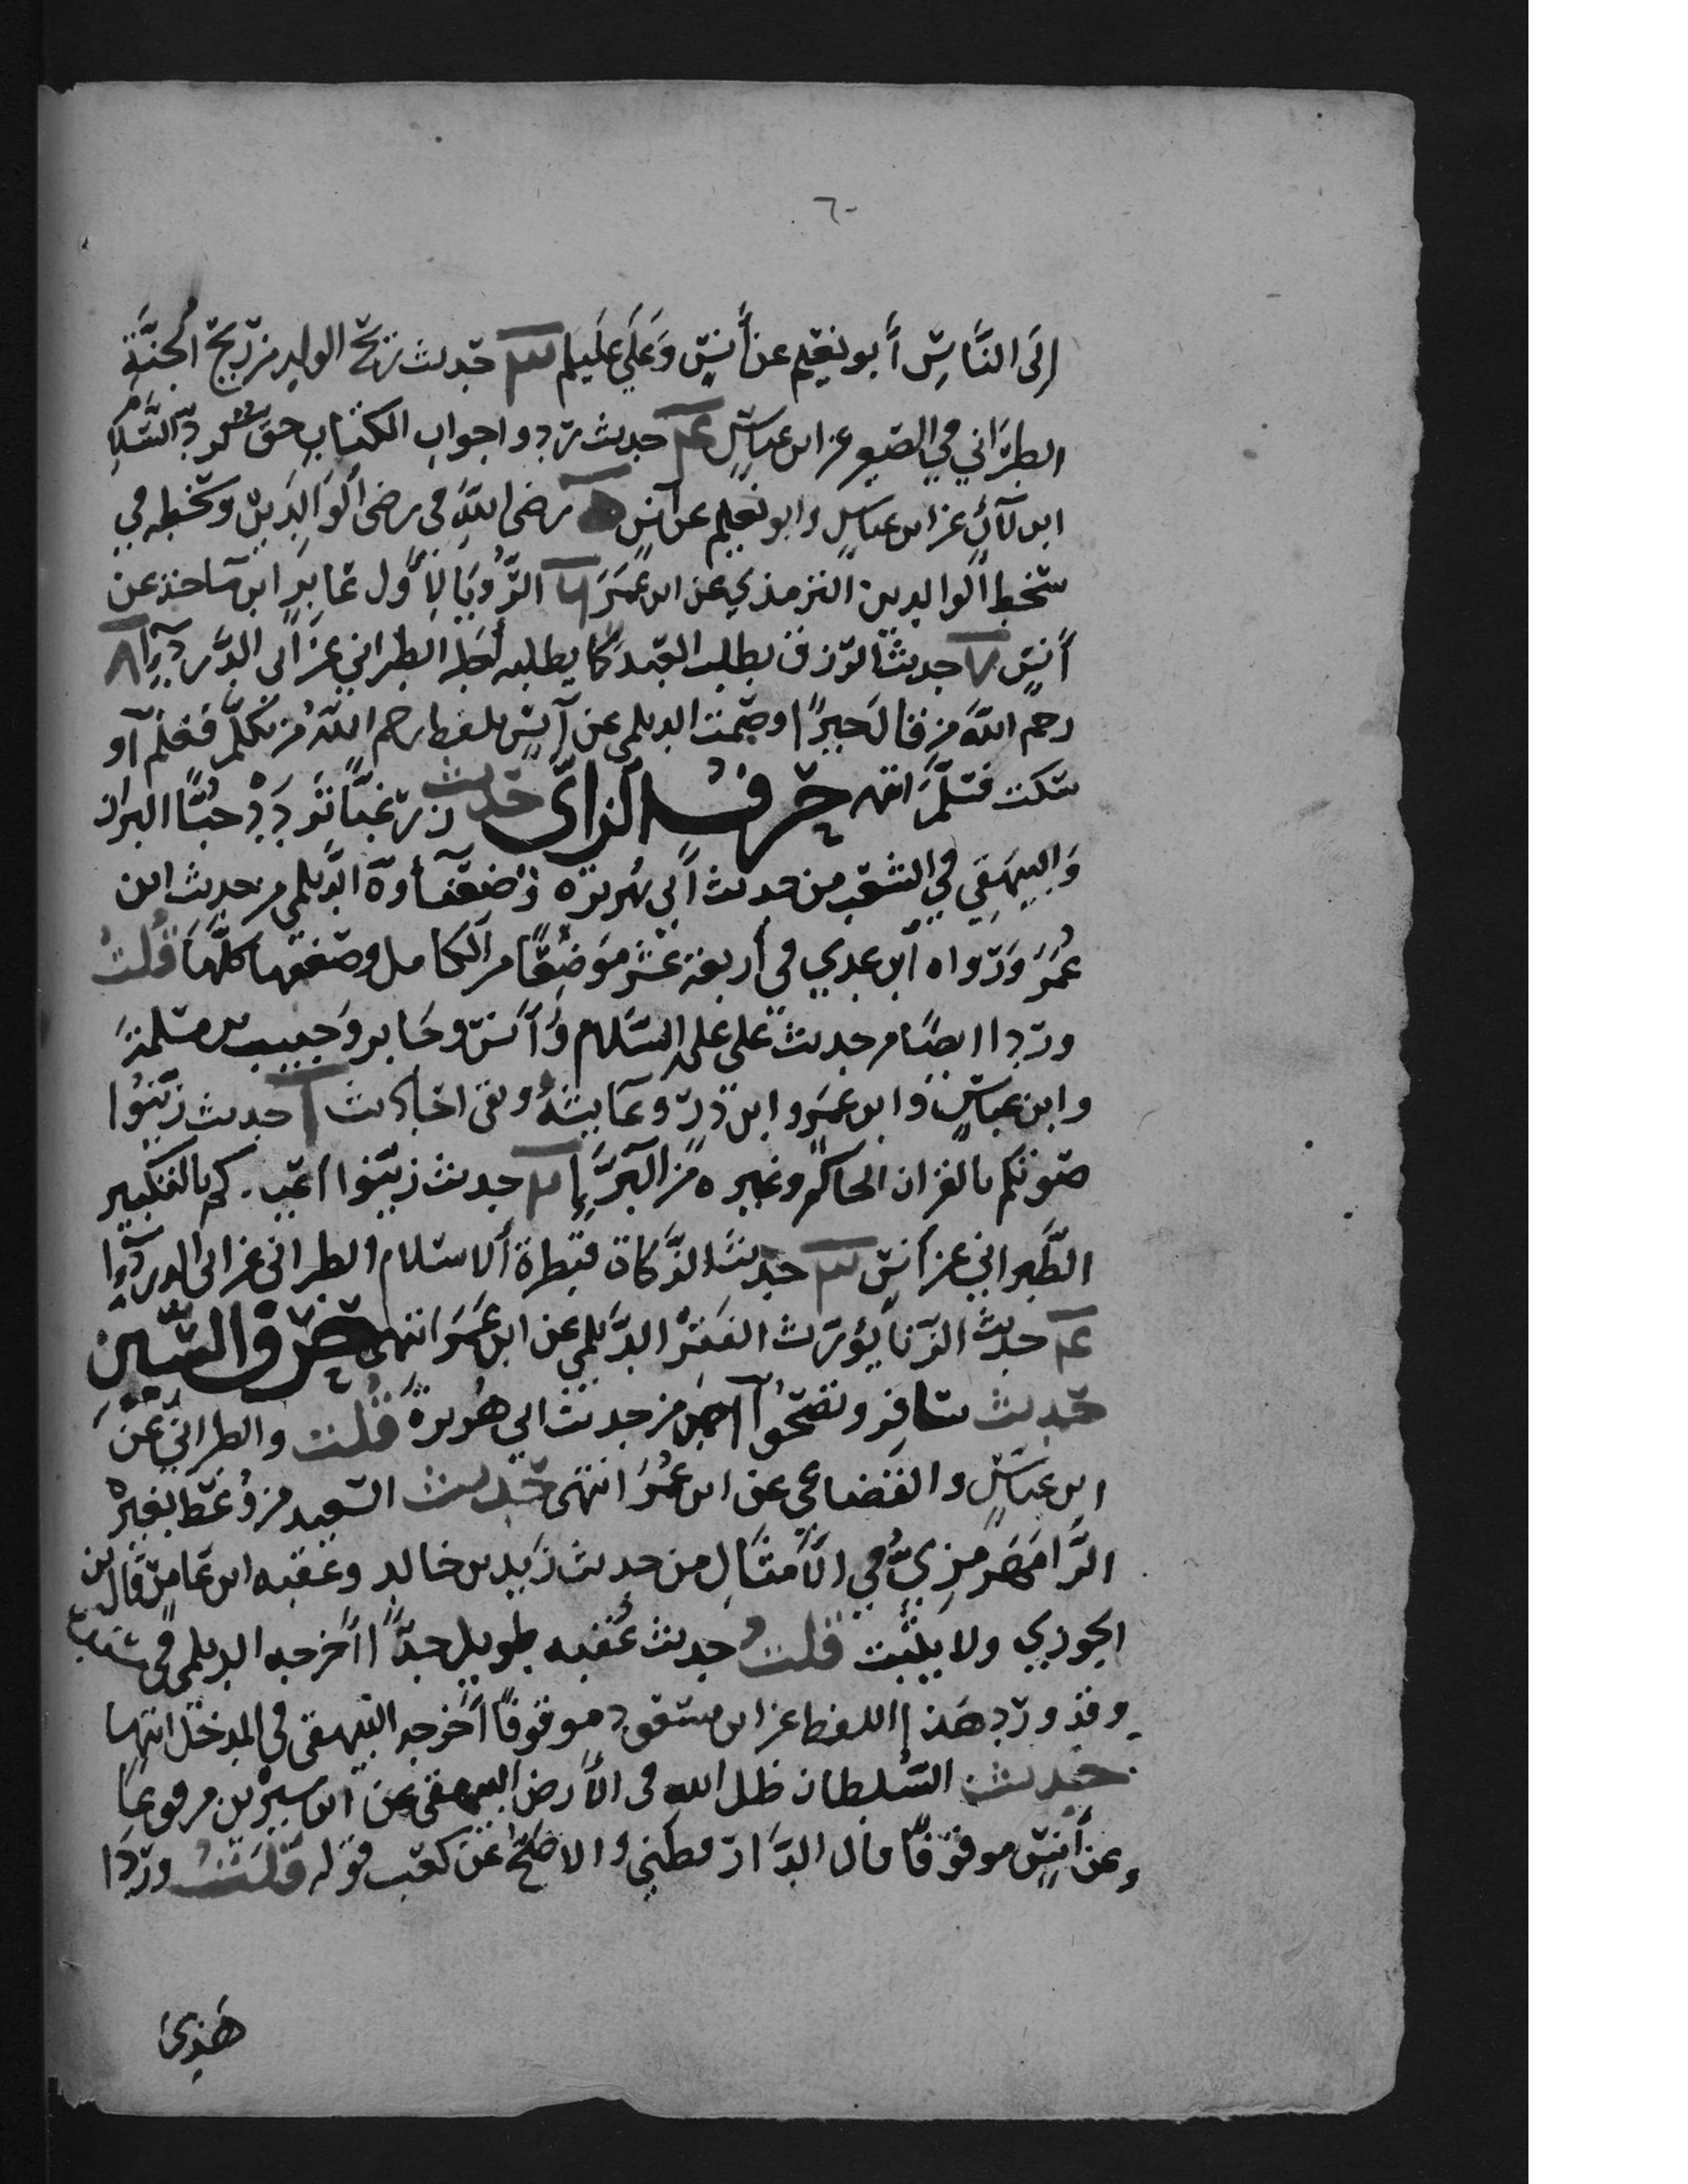 ٦٠
إلَى النَّاسِ أبو نعيم عن أنسٍ وَعَلَي عليهم ٣ حديث ريح الولد من ريح الجنَّةِ
الطبراني في الصغير عن ابن عباسٍ ٤ حديث ردوا جواب الكتاب حق كرد السَّلامِ
ابن لآلٍ عن ابن عباسٍ وابو نعيم عن انسٍ ٥ رضى اللّه فى رضى الوالدين وسخطه في
سخط الوالدين الترمذي عن ابن عمر ٦ الرُّويا لأول عابر ابن ماجة عن
أنسٍ ٧ حديث الرزق يطلب العبد كما يطلبه أجله الطبراني عن أبى الدَّرداءِ ٨
رحم اللّه من قال خيرًا او صمت الديلمى عن أنسٍ بلفظ رحم اللّه من تكلَّم فغنم أو
سكت فسلَّمَ انتهى حرف الزاى حديث زر غبًّا تزدد حُبًّا البزار
وَالبيهقي في الشعب من حديث أبي هريرة وضعَّفاه الدَّيلمي من حديث ابن
عُمَرَ وَرواه ابن عدي في أربعة عشر مَوضِعًا من الكامل وضعفها كلَّهَا قُلتُ
ورد ايضًا من حديث على عليه السَّلام وَأنس وجابر وَحبيب بن مسلمةَ
وابن عباسٍ وابن عمرو وابن ذرّ وعايشةُ وبقى احَاديث ٢ حديث زَيّنوُا
صوتكم بالقران الحاكم وغيره من البَرَّإِ ٢ حديث زيّنوا اعيادكم بالتكبير
الطَّبراني عن أنسٍ ٣ حديث الزَّكاة قنطرة الاسلام الطبرانى عن ابى الدرداءِ
٤ حديث الزنا يؤرث الفقرْ الدَّيلمي عن ابن عمَرَ انتهى حرف السّين
حديث سافرو تصحُّوا أحمَدُ من حديث ابي هُريرةَ قُلت والطبراني عَنَ
ابن عباسٍ والقضاعي عن ابن عُمَرَ انتهى حديث السعيد من وُعظ بغيرهِ
الرَّامهَرمزيُّ في الأمثَال من حديث زَيد بن خالد وعُقبه ابن عَامرٍ قال ابن
الجوزي ولا يثبت قلتُ حديث عُقبه طويل جدًّا اخرجه الديلمى في
وقد ورد هَذا اللفظ عن ابن مسعود موقوفًا أخرجه البيهقى في المدخل انتهى
حديث السُّلطان ظل اللّه فى الأرض البيهقى عن ابن سيرين مرفوعا
وعن أنسٍ موقوفًا قال الدَّارقطني والاصَحُّ عَن كعب قوله قُلتُ وردَا
هَذى